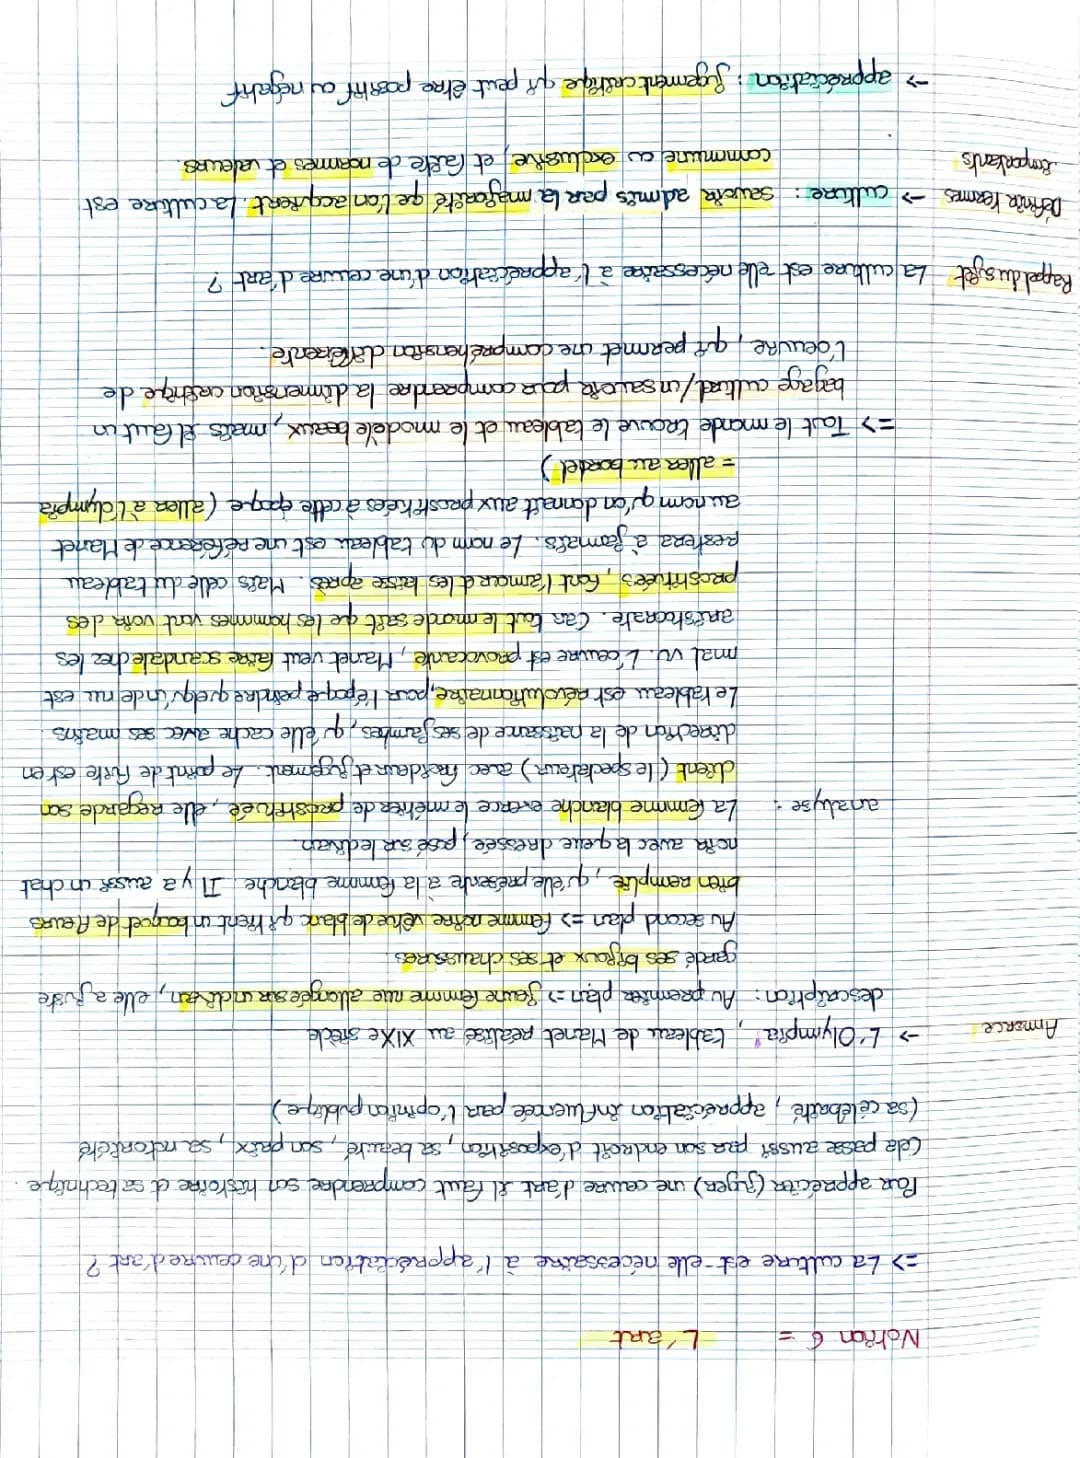 Notion 6 = L'art
=> La culture est-elle nécessaire à l'appréciation d'une œuvre d'art ?
Pour apprécier (juger) une œuvre d'art il faut comprendre son histoire et sa technique.
Cela passe aussi par son endroit d'exposition, sa beauté, son prix, sa notoriété
(sa célébrité, appréciation influencée par l'opinion publique)
Amorce -> "L'Olympia", tableau de Manet réalisé au XIXe siècle
description : Au premier plan => jeune femme nue allongée sur un divan, elle a juste
gardé ses bijoux et ses chaussures.
Au second plan => femme noire vêtue de blanc qui tient un bouquet de fleurs
bien remplie, qu'elle présente à la femme blanche. Il y a aussi un chat
noir avec la queue dressée, posé sur le divan.
analyse : La femme blanche exerce le métier de prostituée, elle regarde son
client (le spectateur) avec froideur et jugement. Le point de fuite est en
direction de la naissance de ses jambes, qu'elle cache avec ses mains.
Le tableau est révolutionnaire, pour l'époque peindre quelqu'un de nu est
mal vu. L'œuvre est provocante, Manet veut faire scandale chez les
aristocrate. Car tout le monde sait que les hommes vont voir des
prostituées, font l'amour et les laisse après. Mais celle du tableau
restera à jamais. Le nom du tableau est une référence de Manet
au nom qu'on donnait aux prostituées à cette époque (aller à l'Olympia
= aller au bordel)
=> Tout le monde trouve le tableau et le modèle beaux, mais il faut un
bagage culturel/un savoir pour comprendre la dimension critique de
l'oeuvre, qui permet une compréhension différente.
Rappel du sujet La culture est elle nécessaire à l'appréciation d'une œuvre d'art ?
Définir termes -> culture : savoir admis par la majorité que l'on acquiert. La culture est
importants commune ou exclusive, et faite de normes et valeurs.
-> appréciation : jugement critique qui peut être positif ou négatif